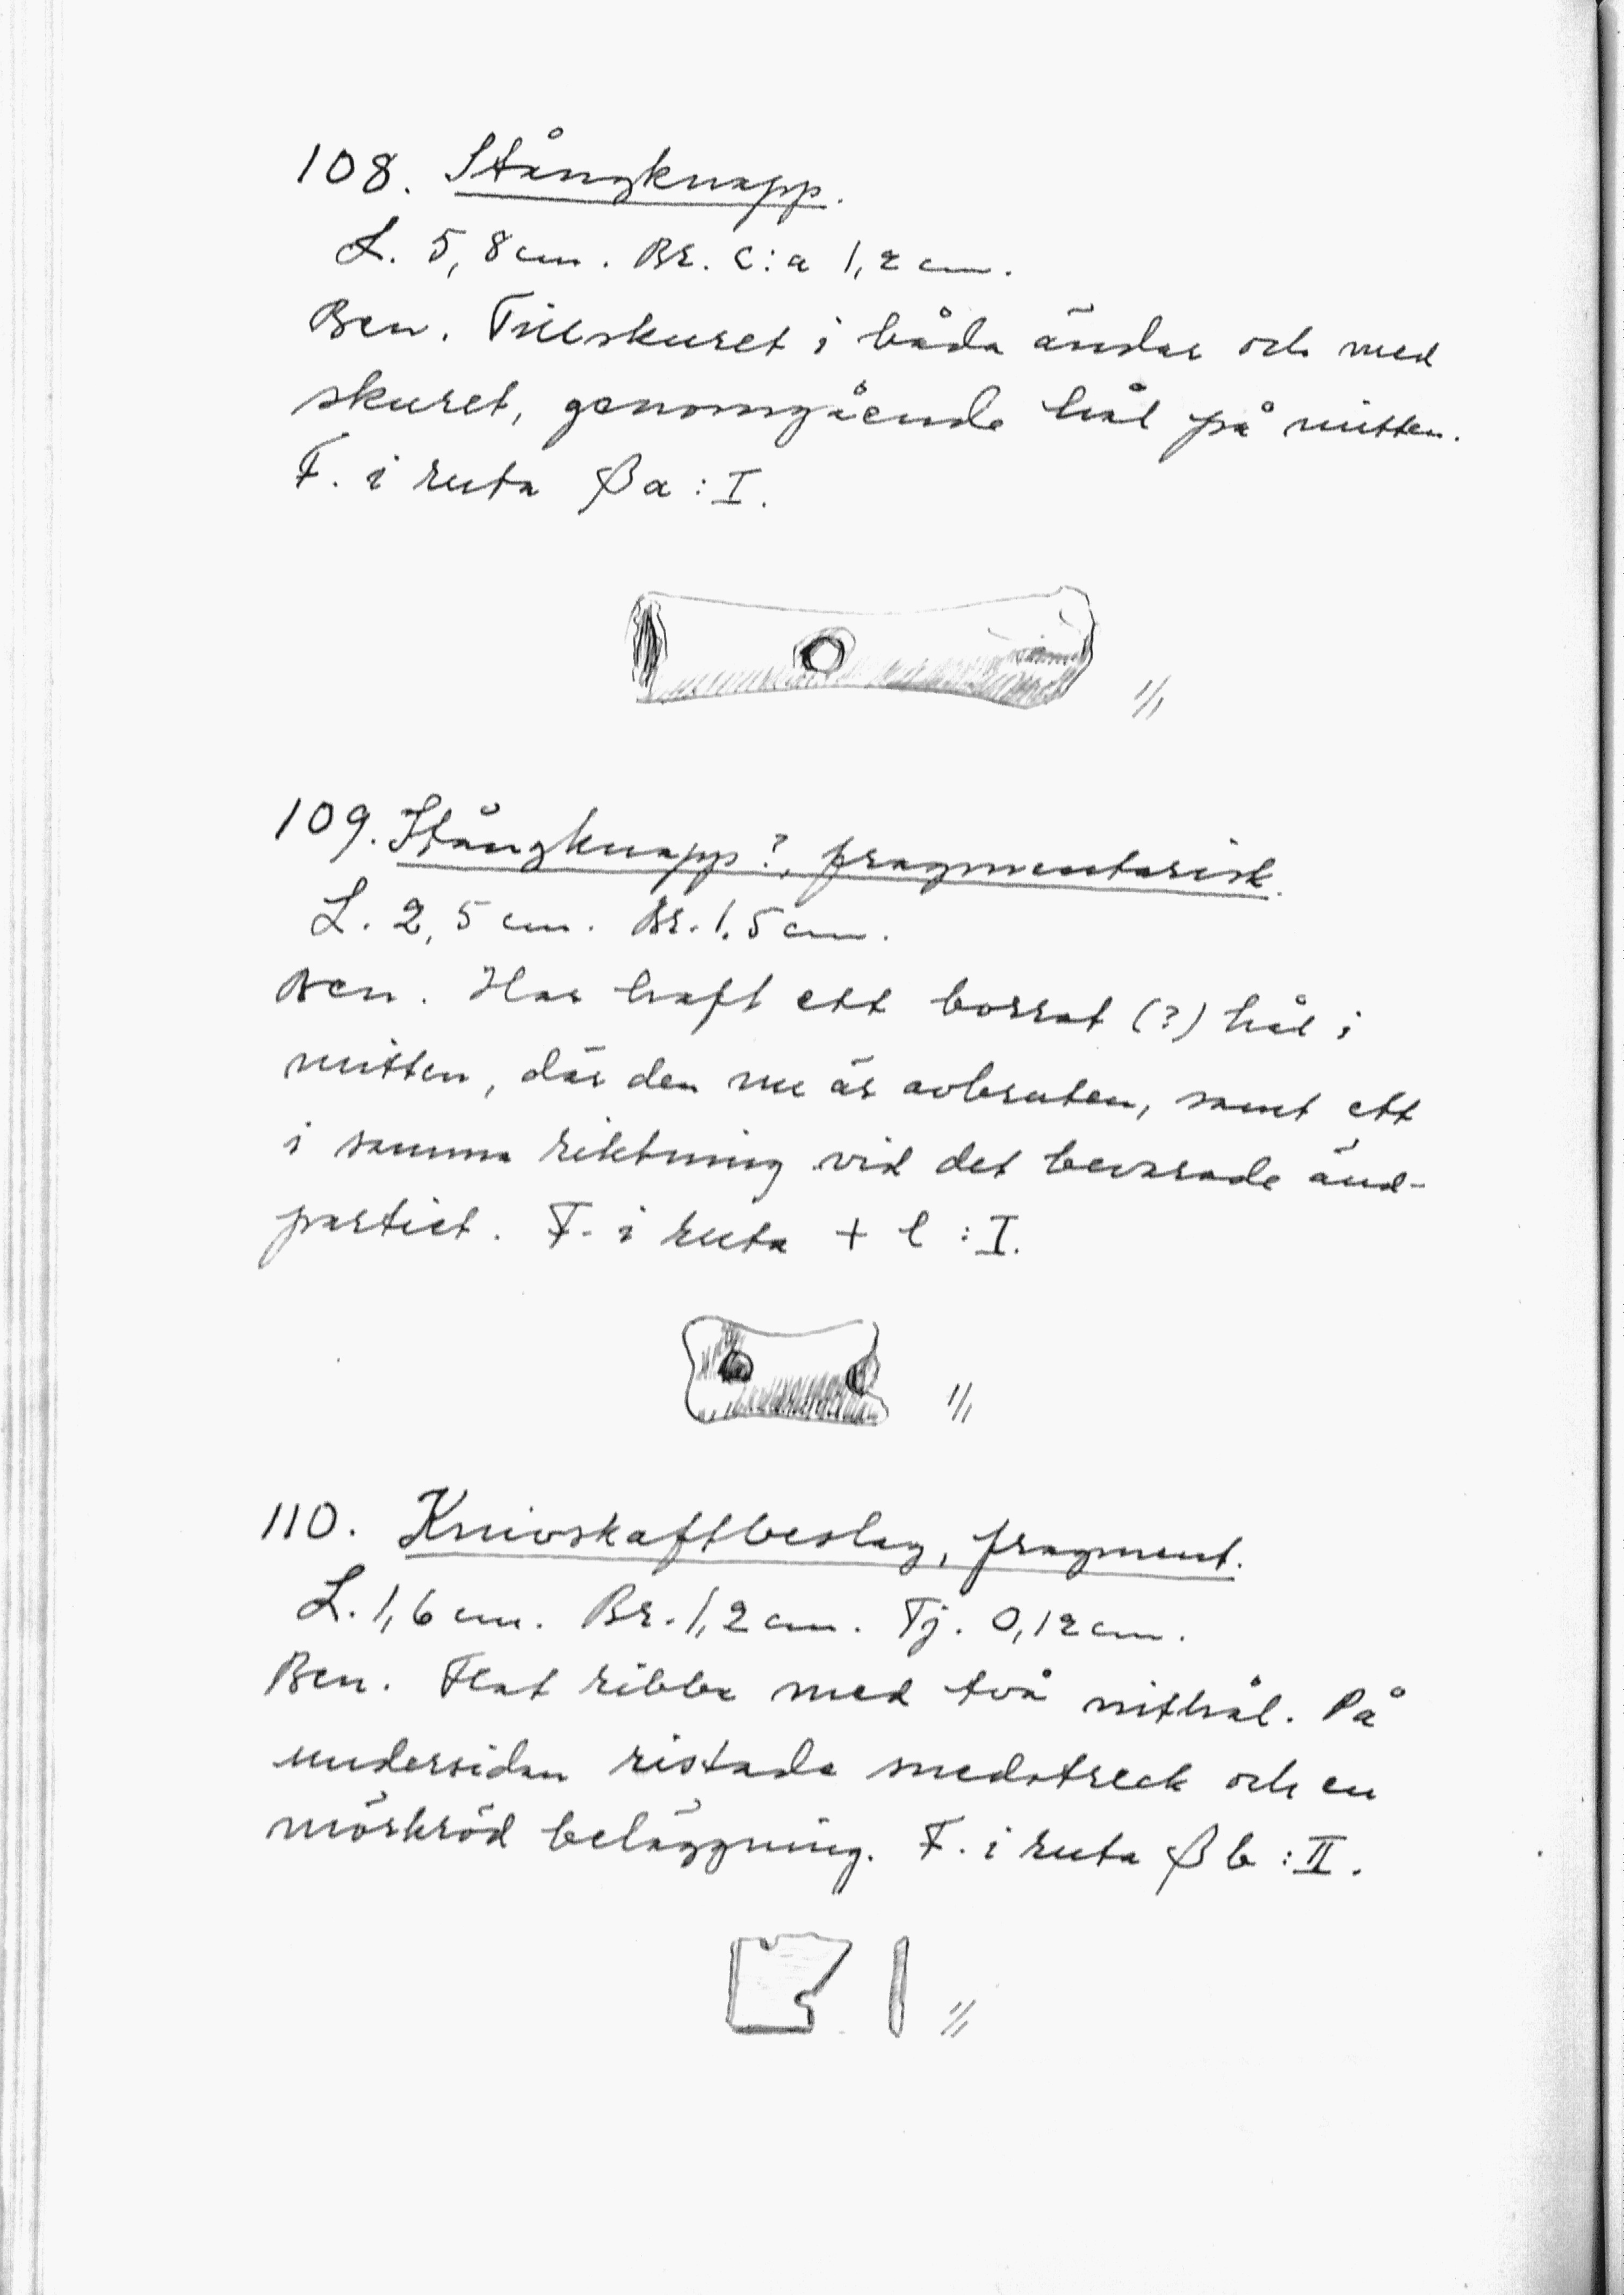 108. Stångknapp.
L. 5,8 cm. Br. c:a 1,2 cm.
Ben. Tillskuret i båda ändar och med
skuret, genomgående hål på mitten.
F. i ruta βa : I.
1/1
109. Stångknapp?, fragmentarisk.
L. 2,5 cm. Br. 1,5 cm.
Ben. Har haft ett borrat (?) hål i
mitten, där den nu är avbruten, samt ett
i samma riktning vid det bevarade änd-
partiet. F. i ruta + l : I.
1/1
110. Knivskaftbeslag, fragment.
L. 1,6 cm. Br. 1,2 cm. Tj. 0,12 cm.
Ben. Flat ribba med två nithål. På
undersidan ristade snedstreck och en
mörkröd beläggning. F. i ruta βb : II.
1/1